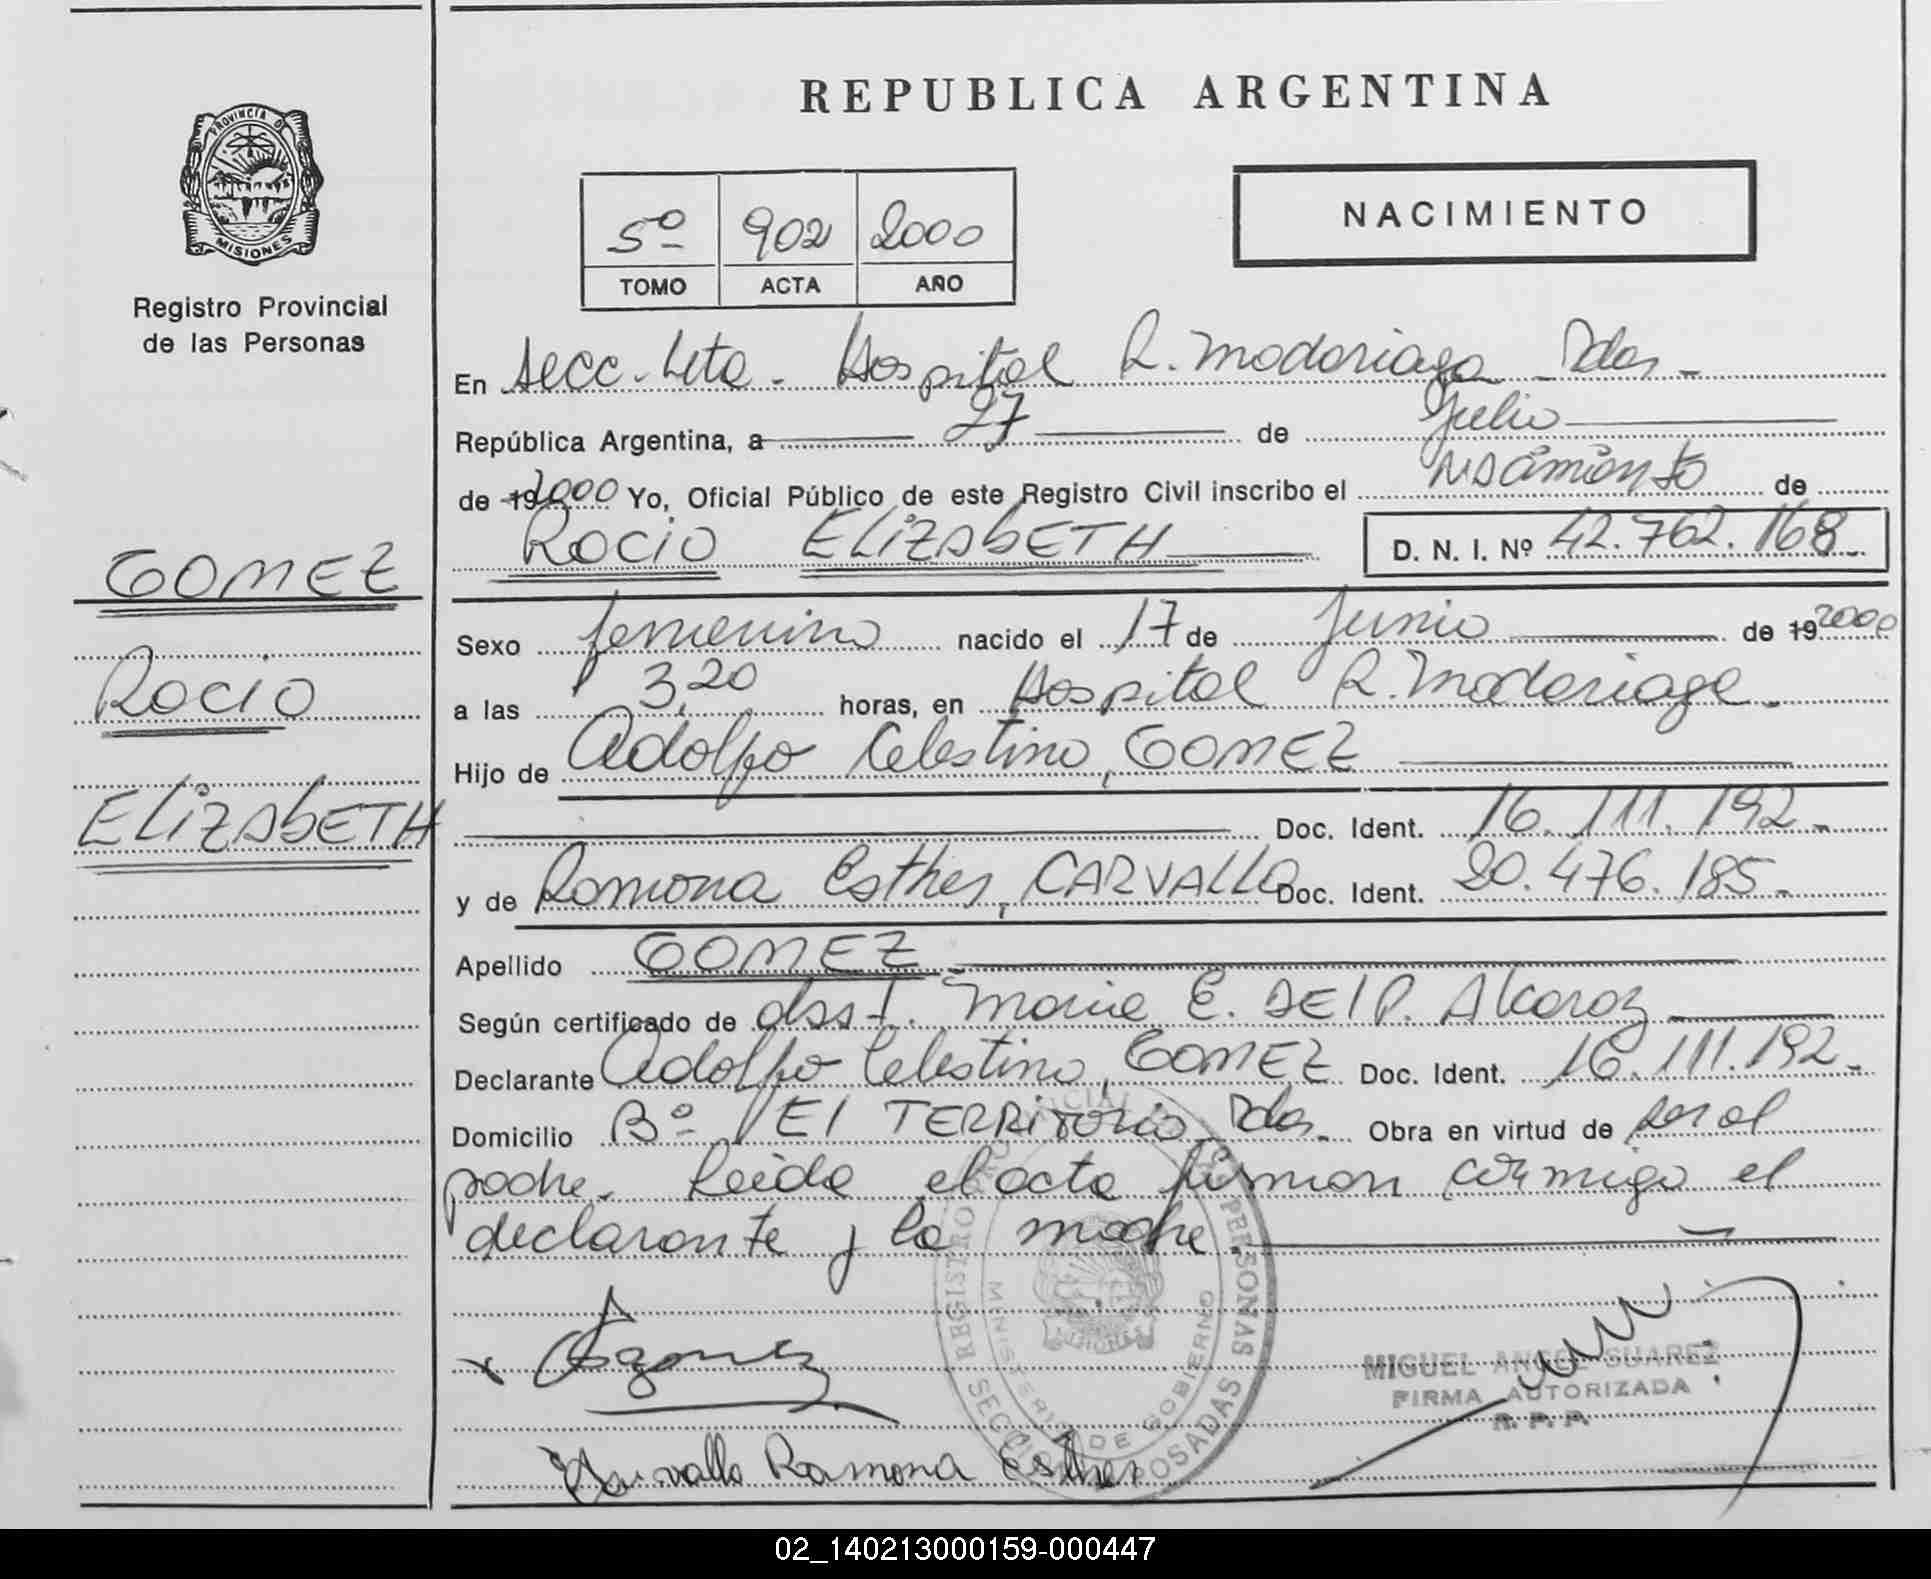 REPUBLICA ARGENTINA
PROVINCIA DE
MISIONES
Registro Provincial
de las Personas
5º 902 2000
TOMO ACTA AÑO
NACIMIENTO
En Secc. 4ta. Hospital R. Madariaga - Pdas -
República Argentina, a 27 de Julio
de 192000 Yo, Oficial Público de este Registro Civil inscribo el nacimiento de
ROCIO ELIZABETH D. N. I. Nº 42.762.168
GOMEZ
ROCIO
ELIZABETH
Sexo femenino nacido el 17 de Junio de 19 2000
a las 3,20 horas, en Hospital R. Madariaga.
Hijo de Adolfo Celestino, GOMEZ
Doc. Ident. 16.111.192.
y de Ramona Esther, CARVALLO Doc. Ident. 20.476.185.
Apellido GOMEZ
Según certificado de obst. Maria E. DEL P. Alcaraz
Declarante Adolfo Celestino, GOMEZ Doc. Ident. 16.111.192.
Domicilio Bº El TERRITORIO Pdas. Obra en virtud de ser el
padre. Leida el acta firman conmigo el
declarante y la madre.
REGISTRO PROVINCIAL DE LAS PERSONAS
MINISTERIO DE GOBIERNO
SECCION POSADAS
x AGomez
MIGUEL ANGEL SUAREZ
FIRMA AUTORIZADA
R. P. P.
Carvallo Ramona Esther
02_140213000159-000447